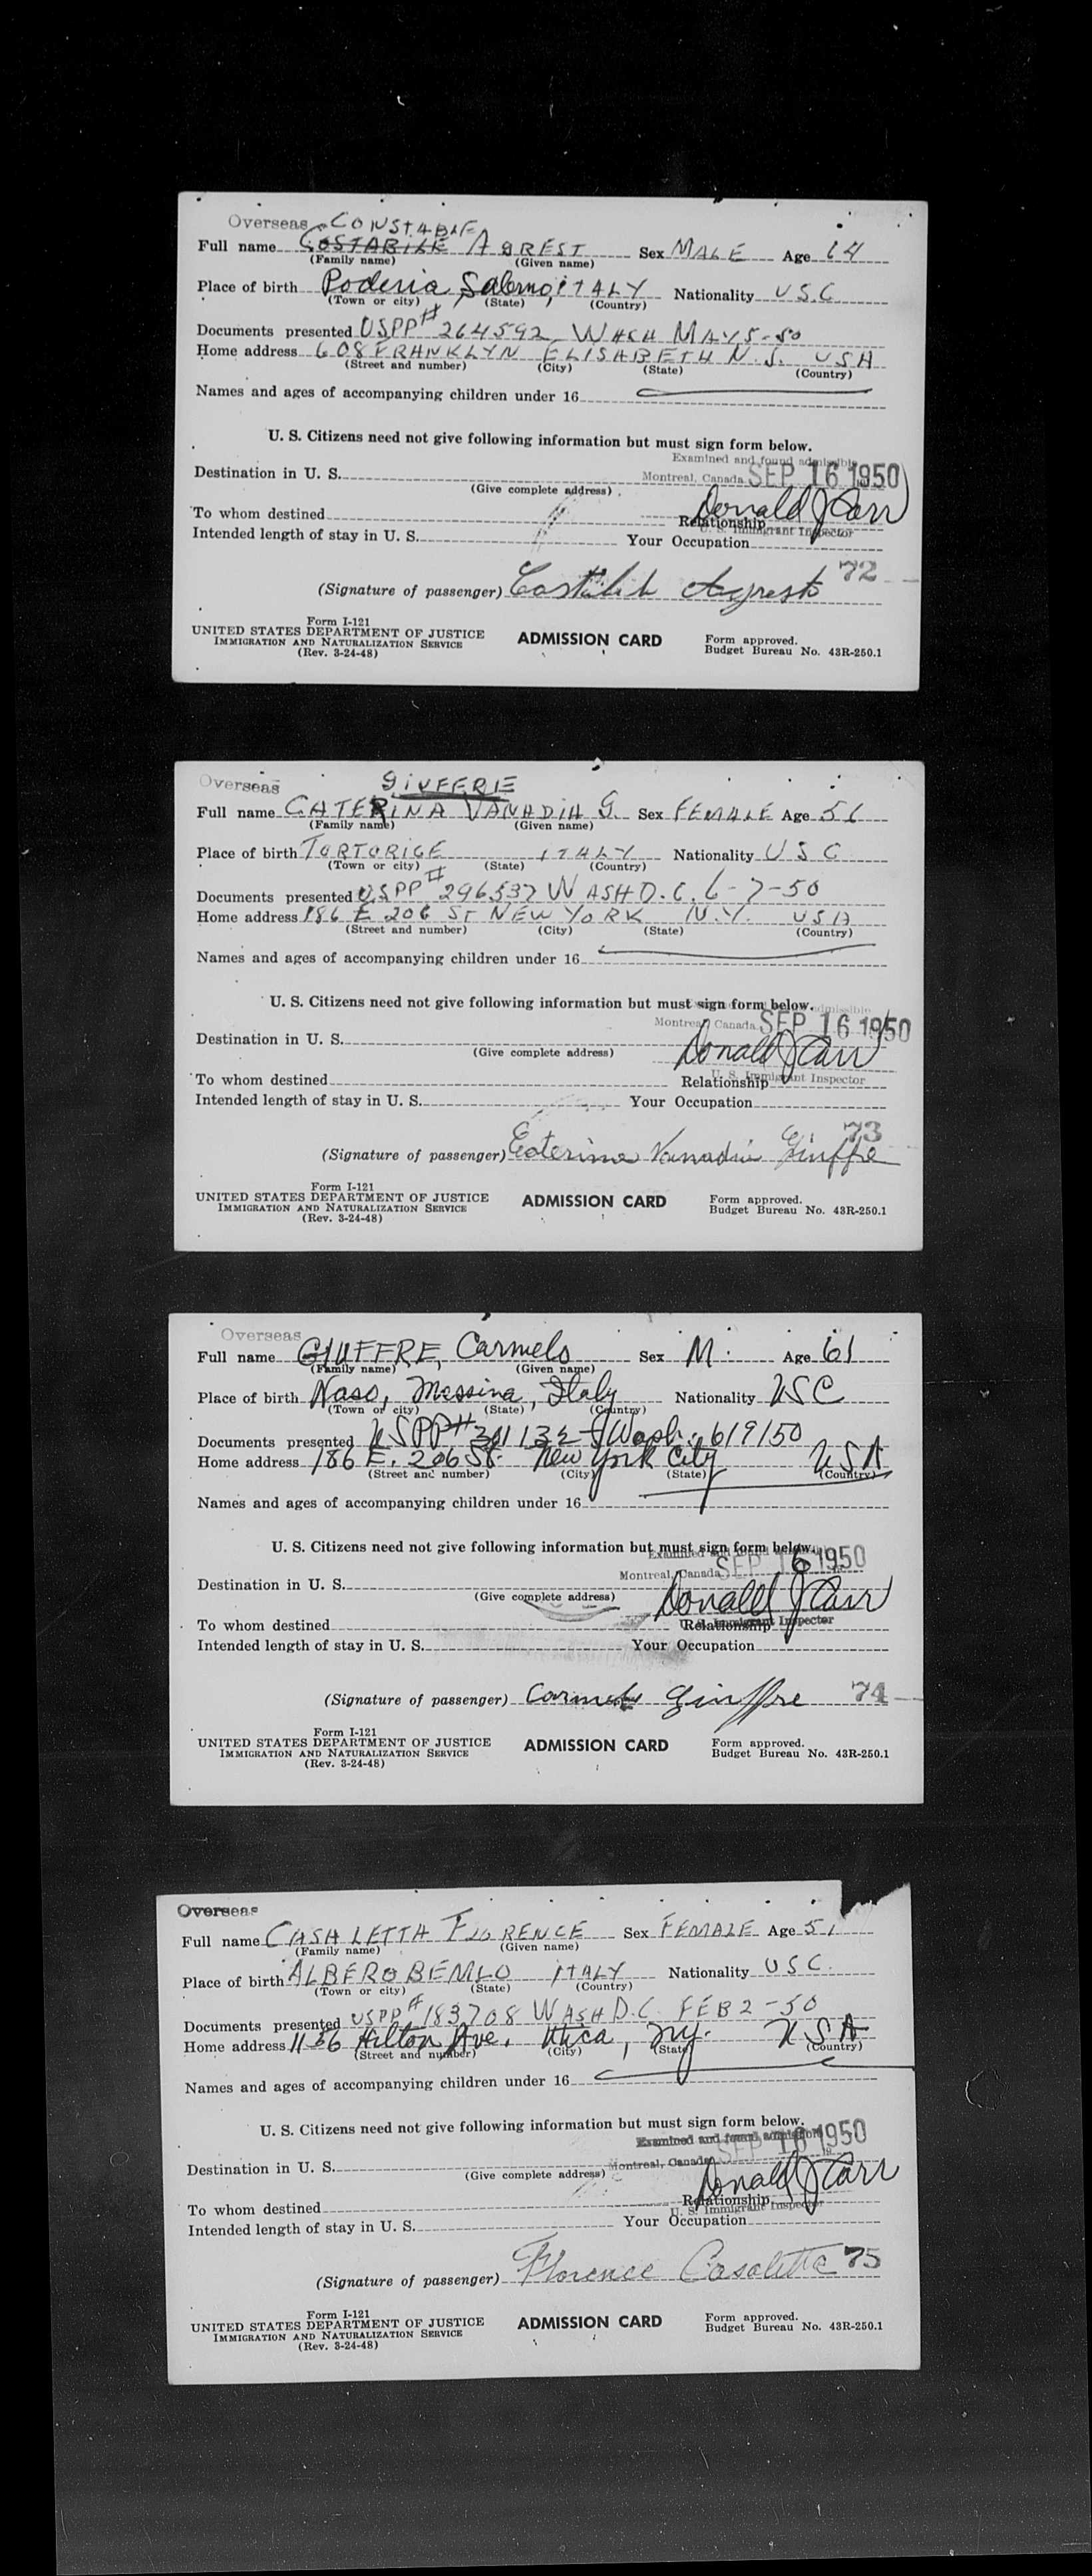 Overseas CONSTABLE
Full name COSTABILE AGREST Sex MALE Age 64
(Family name) (Given name)
Place of birth Poderia Salerno, ITALY Nationality U.S.C
(Town or city) (State) (Country)
Documents presented USPP# 264592 WASH MAY 5-50
Home address 608 FRANKLYN ELISABETH N.J. USA
(Street and number) (City) (State) (Country)
Names and ages of accompanying children under 16
U. S. Citizens need not give following information but must sign form below.
Examined and found admissible
Destination in U. S. Montreal, Canada SEP 16 1950
(Give complete address)
Donald J Carr
To whom destined Relationship
U. S. Immigrant Inspector
Intended length of stay in U. S. Your Occupation
72
(Signature of passenger) Agresto
Form I-121
UNITED STATES DEPARTMENT OF JUSTICE ADMISSION CARD Form approved.
IMMIGRATION AND NATURALIZATION SERVICE Budget Bureau No. 43R-250.1
(Rev. 3-24-48)
Overseas GIUFFRE
Full name CATERINA VANADIA G. Sex FEMALE Age 56
(Family name) (Given name)
Place of birth TORTORICE ITALY Nationality U S C
(Town or city) (State) (Country)
Documents presented USPP# 296537 WASH D.C. 6-7-50
Home address 186 E 206 ST NEW YORK N.Y. USA
(Street and number) (City) (State) (Country)
Names and ages of accompanying children under 16
U. S. Citizens need not give following information but must sign form below.
admissible
Destination in U. S. Montreal, Canada SEP 16 1950
(Give complete address)
Donald J Carr
To whom destined Relationship
U. S. Immigrant Inspector
Intended length of stay in U. S. Your Occupation
73
(Signature of passenger) Caterina Vanadia Giuffre
Form I-121
UNITED STATES DEPARTMENT OF JUSTICE ADMISSION CARD Form approved.
IMMIGRATION AND NATURALIZATION SERVICE Budget Bureau No. 43R-250.1
(Rev. 3-24-48)
Overseas
Full name GIUFFRE, Carmelo Sex M. Age 61
(Family name) (Given name)
Place of birth Naso, Messina, Italy Nationality USC
(Town or city) (State) (Country)
Documents presented USPP# 301132 Wash. 6/9/50
Home address 186 E. 206 St. New York City USA
(Street and number) (City) (State) (Country)
Names and ages of accompanying children under 16
U. S. Citizens need not give following information but must sign form below.
Examined and
Destination in U. S. Montreal, Canada SEP 16 1950
(Give complete address)
Donald J Carr
To whom destined Relationship
U. S. Immigrant Inspector
Intended length of stay in U. S. Your Occupation
(Signature of passenger) Carmelo Giuffre 74
Form I-121
UNITED STATES DEPARTMENT OF JUSTICE ADMISSION CARD Form approved.
IMMIGRATION AND NATURALIZATION SERVICE Budget Bureau No. 43R-250.1
(Rev. 3-24-48)
Overseas
Full name CASALETTA FLORENCE Sex FEMALE Age 51
(Family name) (Given name)
Place of birth ALBEROBEMLO ITALY Nationality USC.
(Town or city) (State) (Country)
Documents presented USPP# 183708 WASH D.C. FEB 2-50
Home address 1156 Hilton Ave. Utica, NY. USA
(Street and number) (City) (State) (Country)
Names and ages of accompanying children under 16
U. S. Citizens need not give following information but must sign form below.
Examined and found admissible
Destination in U. S. Montreal, Canada SEP 16 1950
(Give complete address)
Donald J Carr
To whom destined Relationship
U. S. Immigrant Inspector
Intended length of stay in U. S. Your Occupation
(Signature of passenger) Florence Casaletta 75
Form I-121
UNITED STATES DEPARTMENT OF JUSTICE ADMISSION CARD Form approved.
IMMIGRATION AND NATURALIZATION SERVICE Budget Bureau No. 43R-250.1
(Rev. 3-24-48)